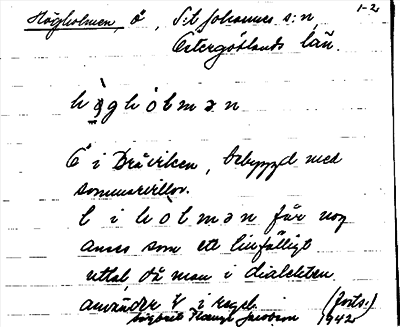 1-2
Högholmen, ö, S:t Johannes s:n,
Östergötlands län.
högholmən
Ö i Bråviken, bebyggd med
sommarvillor.
l i holmən får nog
anses som ett tillfälligt
uttal, då man i dialekten
använder ł i regel. (forts.)
1942